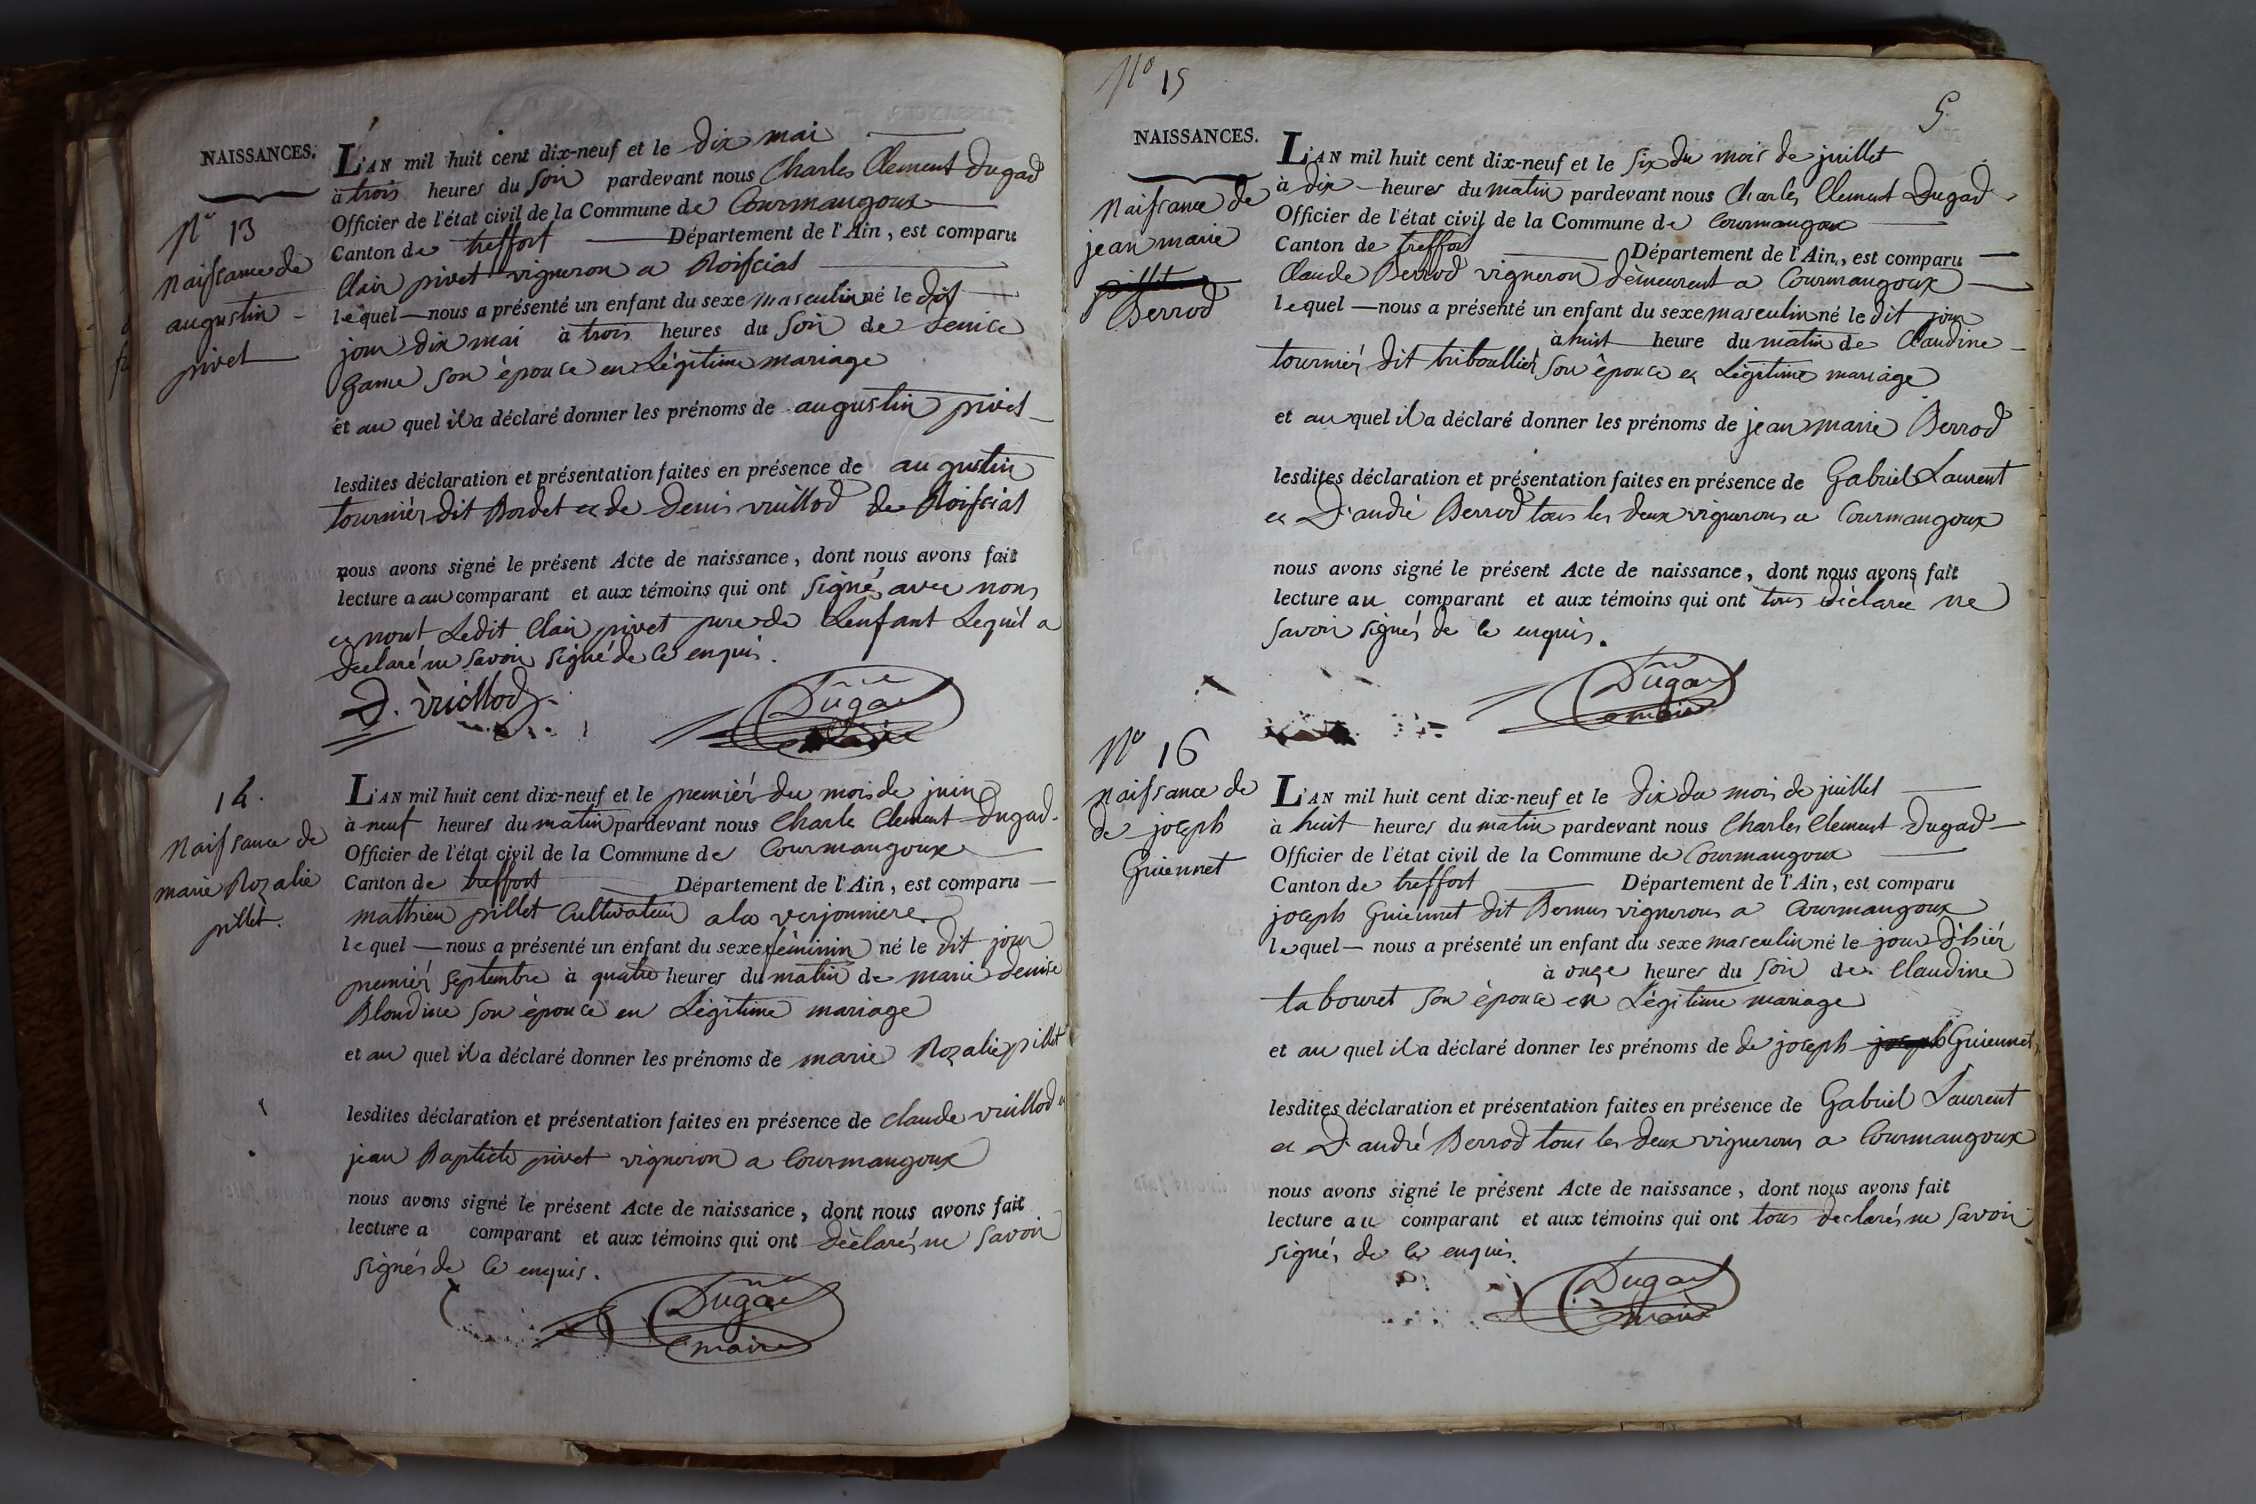 NAISSANCES.
L'AN mil huit cent dix-neuf et le dix mai
à trois heures du soir pardevant nous Charles Clement Dugad
Officier de l'état civil de la Commune de Courmangoux
Canton de treffort Département de l'Ain, est comparu
Clair pivet vigneron a Roissiat
lequel nous a présenté un enfant du sexe masculin né le dit
jour dix mai à trois heures du soir de Denise
Game son épouce en Légitime mariage
et au quel il a déclaré donner les prénoms de augustin pivet
lesdites déclaration et présentation faites en présence de augustin
tournier dit Bordet et de denis vuillod de Roissiat
nous avons signé le présent Acte de naissance, dont nous avons fait
lecture a au comparant et aux témoins qui ont signé avec nous
et nont Ledit Clair pivet pere de Lenfant Lequel a
declaré ne savoir signé de ce enquis.
D. vuillod
Dugad
maire
N° 13
naissance de
augustin
pivet
14.
naissance de
marie Rozalie
pillet.
L'AN mil huit cent dix-neuf et le premier du mois de juin
à neuf heures du matin pardevant nous Charle Clement Dugad
Officier de l'état civil de la Commune de Courmangoux
Canton de treffort Département de l'Ain, est comparu
mathieu pillet Cultivateur a la verjonniere
lequel nous a présenté un enfant du sexe féminin né le dit jour
premier septembre à quatre heures du matin de marie denise
Blondine son épouce en Légitime mariage
et au quel il a déclaré donner les prénoms de marie Rozalie pillet
lesdites déclaration et présentation faites en présence de claude vuillod et
jean Baptiste pivet vigneron a Courmangoux
nous avons signé le présent Acte de naissance, dont nous avons fait
lecture a comparant et aux témoins qui ont déclarés ne savoir
signés de ce enquis.
Dugad
maire
N° 15
5
NAISSANCES.
naissance de
jean marie
pillet
Berrod
L'AN mil huit cent dix-neuf et le six du mois de juillet
à dix heures du matin pardevant nous Charles Clement Dugad
Officier de l'état civil de la Commune de Courmangoux
Canton de treffort Département de l'Ain, est comparu
Claude Berrod vigneron demeurent a Courmangoux
lequel nous a présenté un enfant du sexe masculin né le dit jour
à huit heure du matin de Claudine
tournier dit triboullier son épouce en Légitime mariage
et au quel il a déclaré donner les prénoms de jean marie Berrod
lesdites déclaration et présentation faites en présence de Gabriel Laurent
et D'andré Berrod tous les deux vignerons a Courmangoux
nous avons signé le présent Acte de naissance, dont nous avons fait
lecture au comparant et aux témoins qui ont tous déclaré ne
savoir signés de ce enquis.
Dugad
maire
N° 16
naissance de
de joseph
Guiennet
L'AN mil huit cent dix-neuf et le dix du mois de juillet
à huit heures du matin pardevant nous Charles Clement Dugad
Officier de l'état civil de la Commune de Courmangoux
Canton de treffort Département de l'Ain, est comparu
joseph Guiennet dit Bernus vignerons a Courmangoux
lequel nous a présenté un enfant du sexe masculin né le jour d'hiér
à onze heures du soir de Claudine
tabouret son épouce en Légitime mariage
et au quel il a déclaré donner les prénoms de de joseph joseph Guiennet
lesdites déclaration et présentation faites en présence de Gabriel Laurent
et D'andré Berrod tous les deux vignerons a Courmangoux
nous avons signé le présent Acte de naissance, dont nous avons fait
lecture au comparant et aux témoins qui ont tous declarés ne savoir
signés de ce enquis.
Dugad
maire